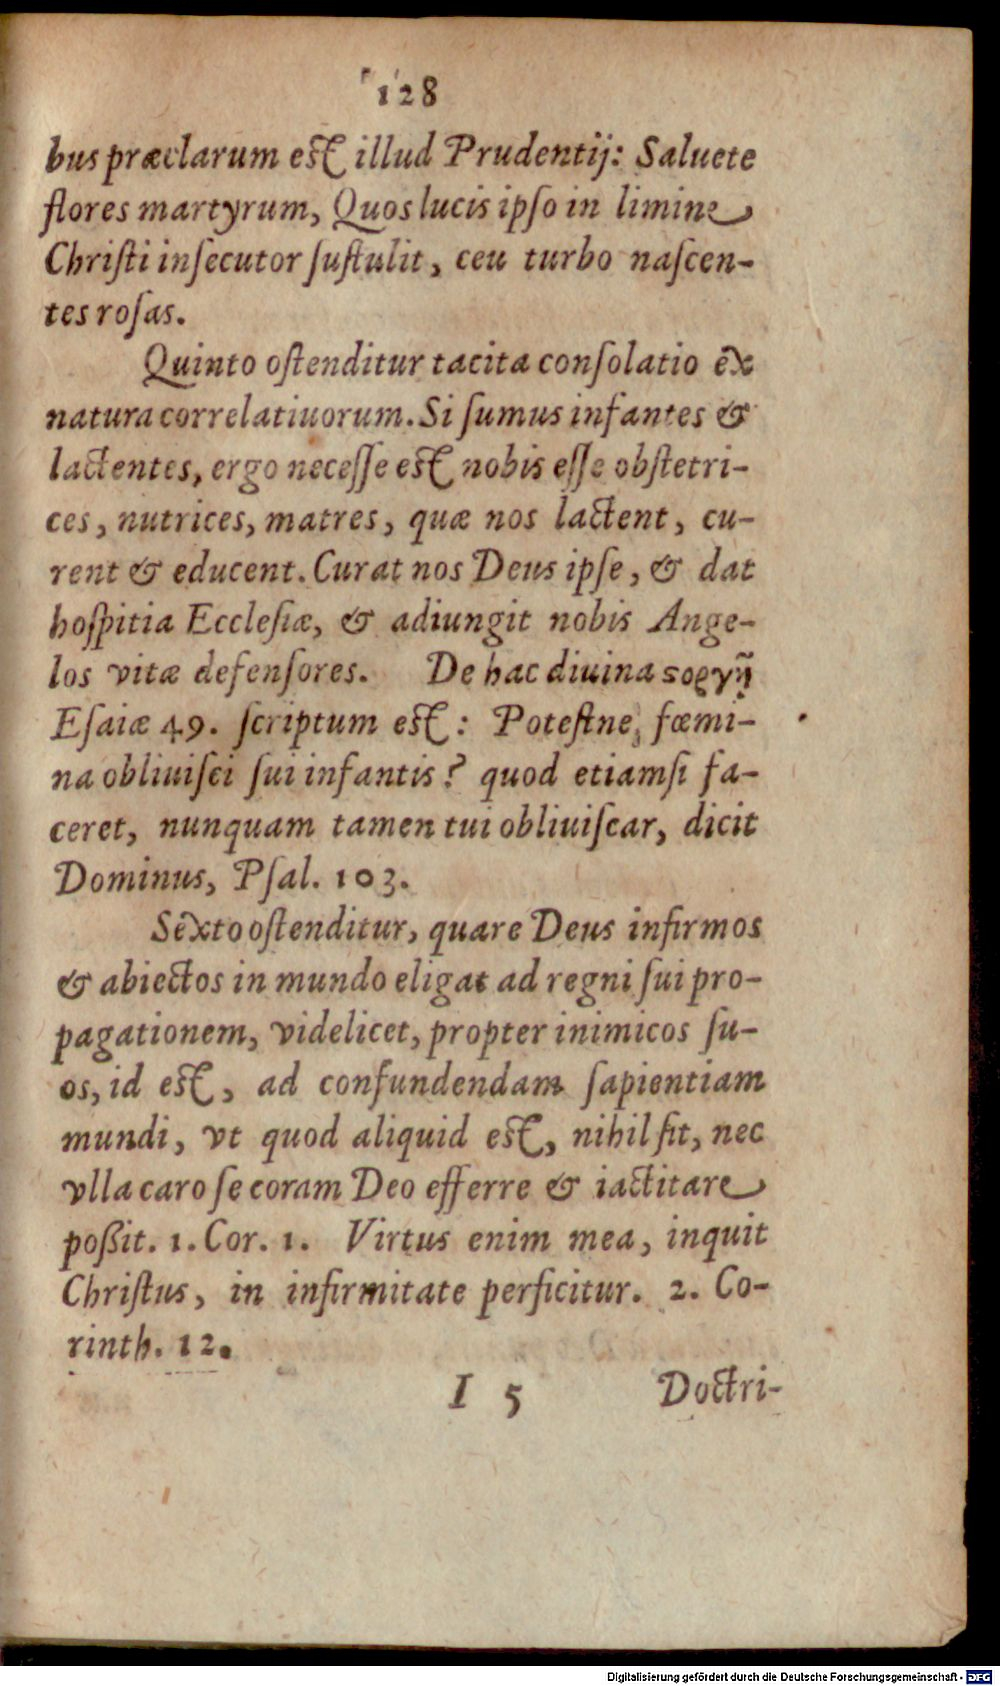 128
bus præclarum est illud Prudentij: Saluete
flores martyrum, Quos lucis ipſo in limine
Chriſti inſecutor ſuſtulit, ceu turbo naſcen-
tes roſas.
Quinto oſtenditur tacita conſolatio ex
natura correlatiuorum. Si ſumus infantes &
lactentes, ergo neceſſe est nobis eſſe obſtetri-
ces, nutrices, matres, quæ nos lactent, cu-
rent & educent. Curat nos Deus ipſe, & dat
hoſpitia Eccleſiæ, & adiungit nobis Ange-
los vitæ defenſores. De hac diuina ϛοργῇ
Eſaiæ 49. ſcriptum est: Poteſtne fœmi-
na obliuiſci ſui infantis? quod etiamſi fa-
ceret, nunquam tamen tui obliuiſcar, dicit
Dominus, Pſal. 103.
Sexto oſtenditur, quare Deus infirmos
& abiectos in mundo eligat ad regni ſui pro-
pagationem, videlicet, propter inimicos ſu-
os, id est, ad confundendam ſapientiam
mundi, vt quod aliquid est, nihil ſit, nec
vlla caro ſe coram Deo efferre & iactitare
poßit. 1. Cor. 1. Virtus enim mea, inquit
Chriſtus, in infirmitate perficitur. 2. Co-
rinth. 12.
I 5 Doctri-
Digitalisierung gefördert durch die Deutsche Forschungsgemeinschaft - DFG